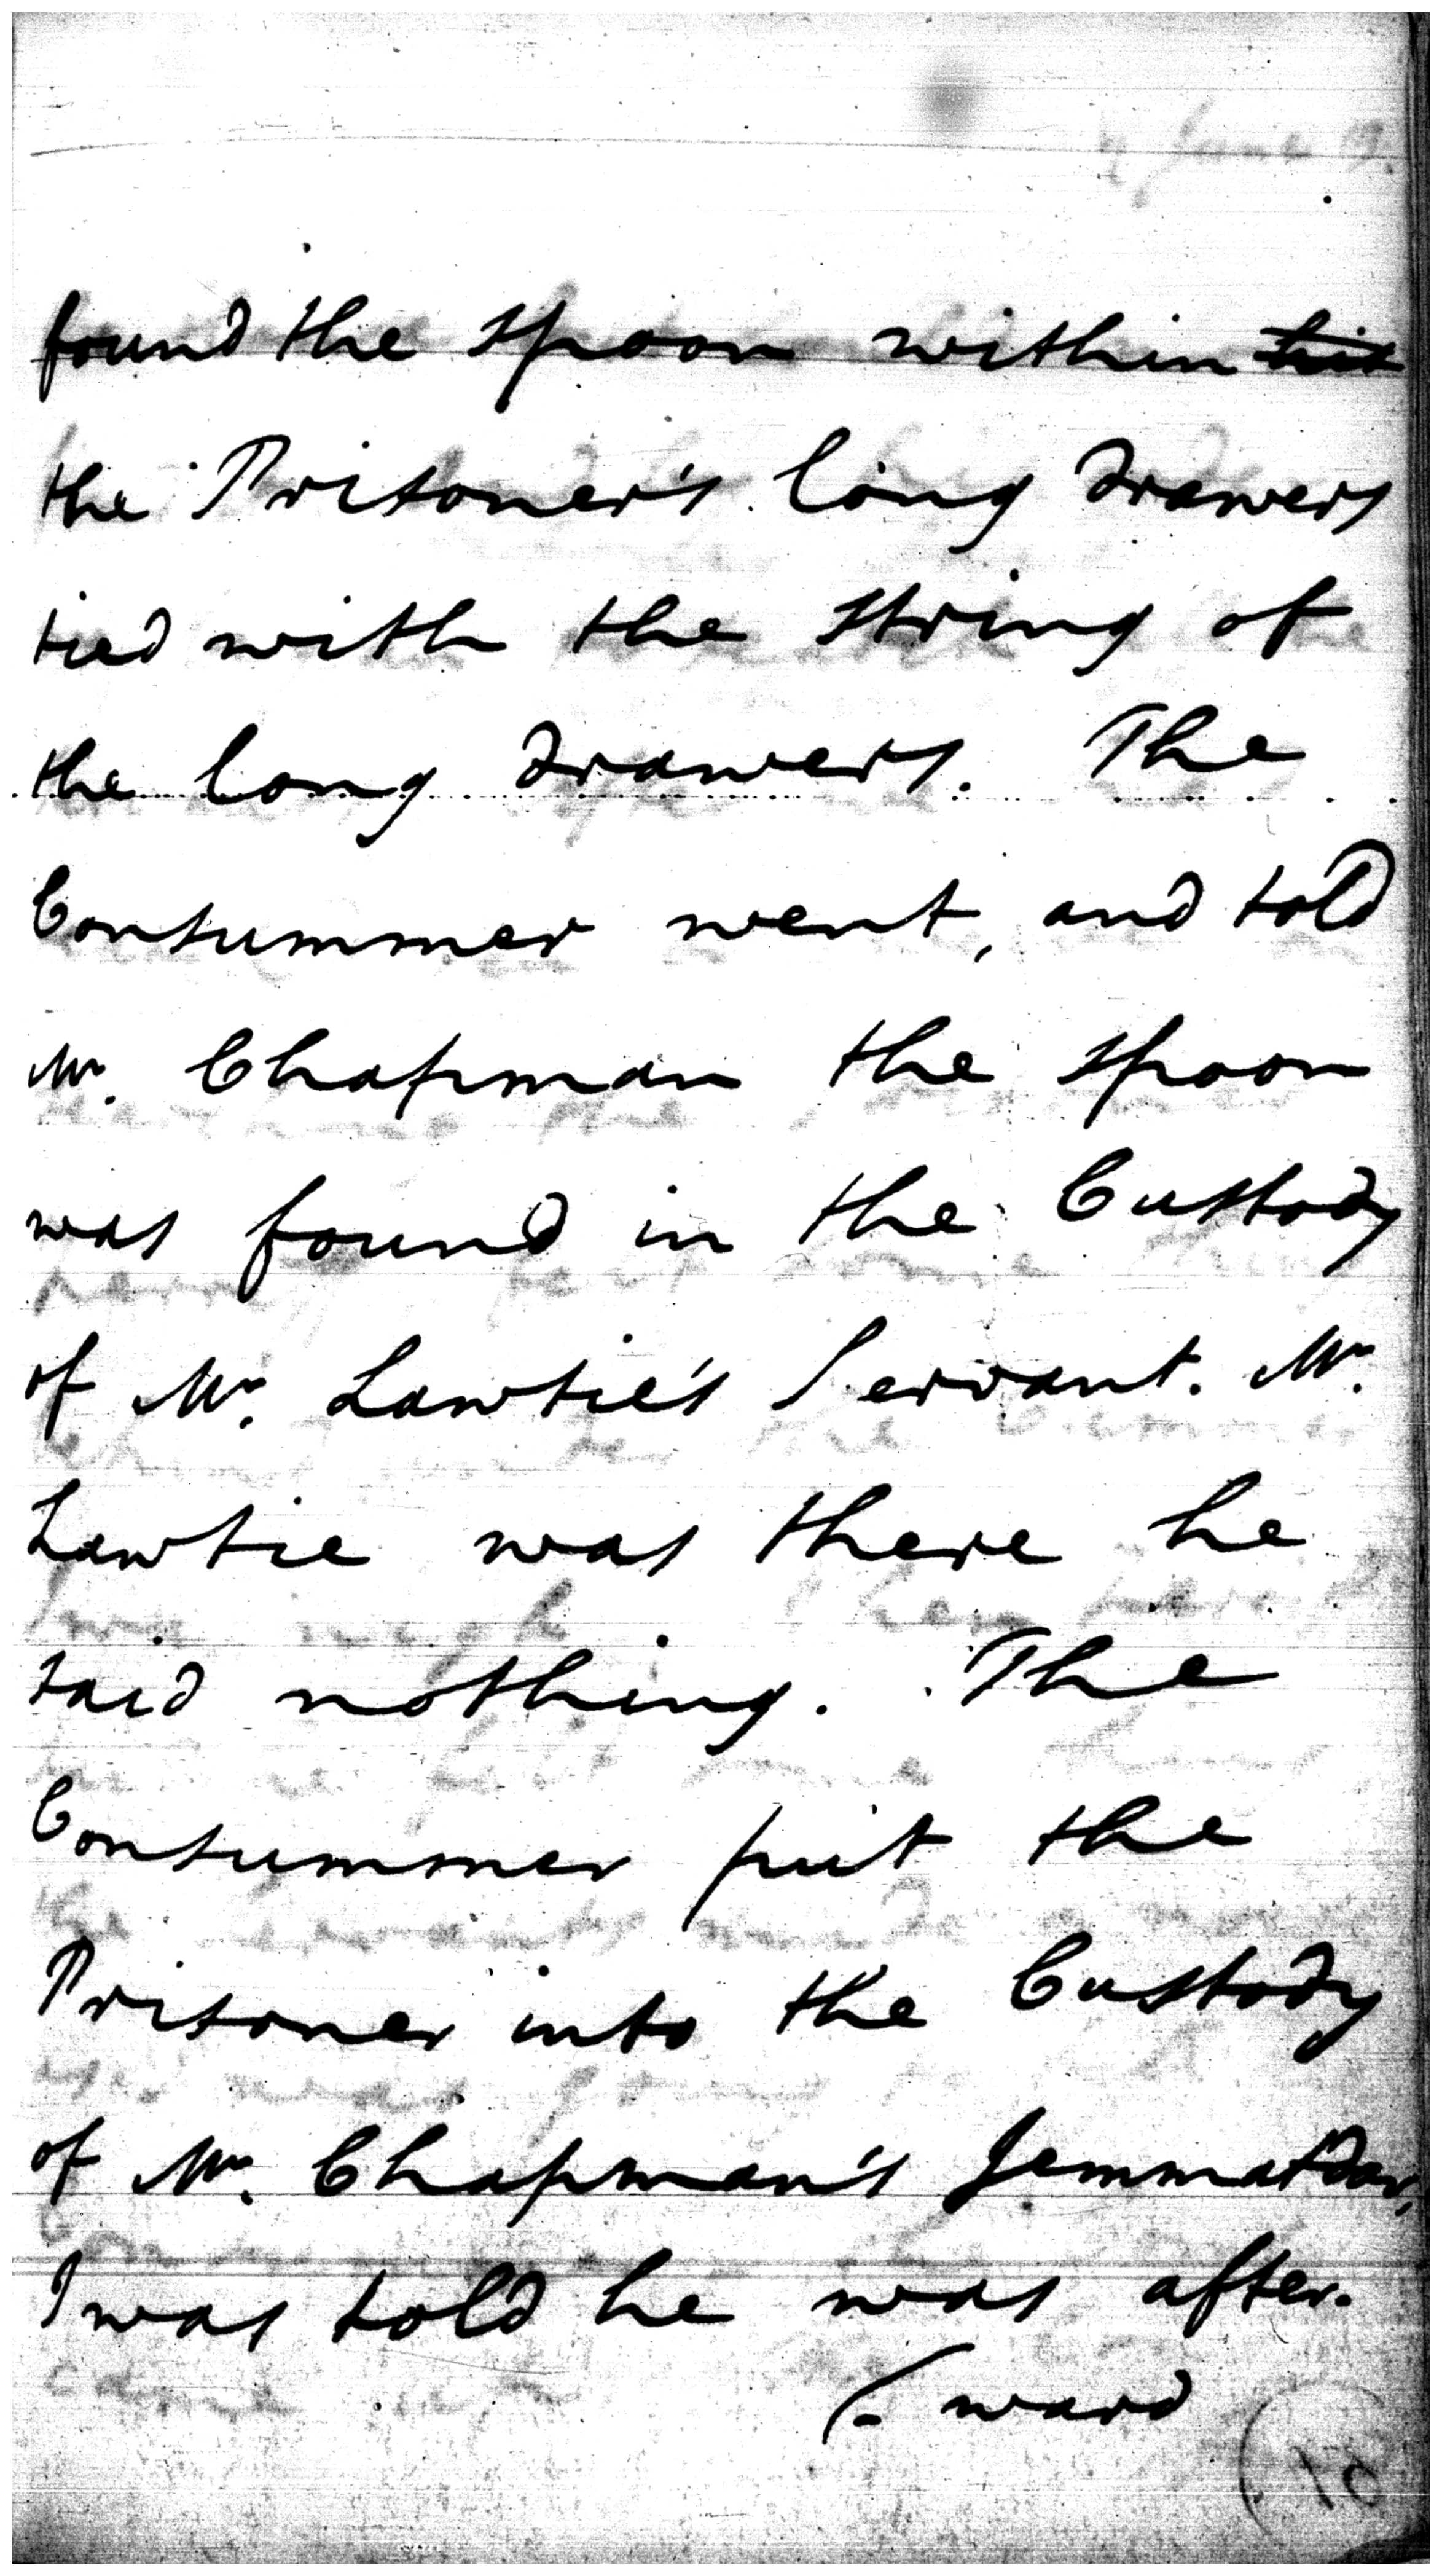 found the spoon within his
the Prisoner's long Drawers
tied with the string of
the long Drawers. The
Consummer went, and told
Mr. Chapman the spoon
was found in the Custody
of Mr. Lawtie's Servant. Mr.
Lawtie was there he
said nothing. The
Consummer put the
Prisoner into the Custody
of Mr. Chapman's Jemmatdar,
I was told he was after-
(- ward